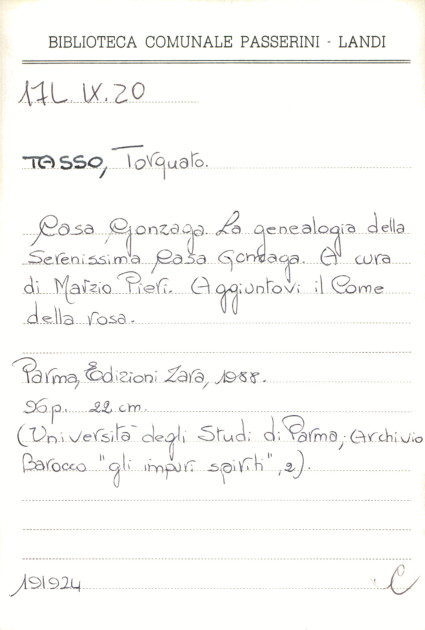 BIBLIOTECA COMUNALE PASSERINI - LANDI
17L. IX. 20
TASSO, Torquato.
Casa Gonzaga. La genealogia della
Serenissima Casa Gonzaga. A cura
di Marzio Pieri. Aggiuntovi il Come
della rosa.
Parma, Edizioni Zara, 1988.
96 p. 22 cm.
(Università degli Studi di Parma; Archivio
Barocco "gli impuri spiriti", 2).
191924
C